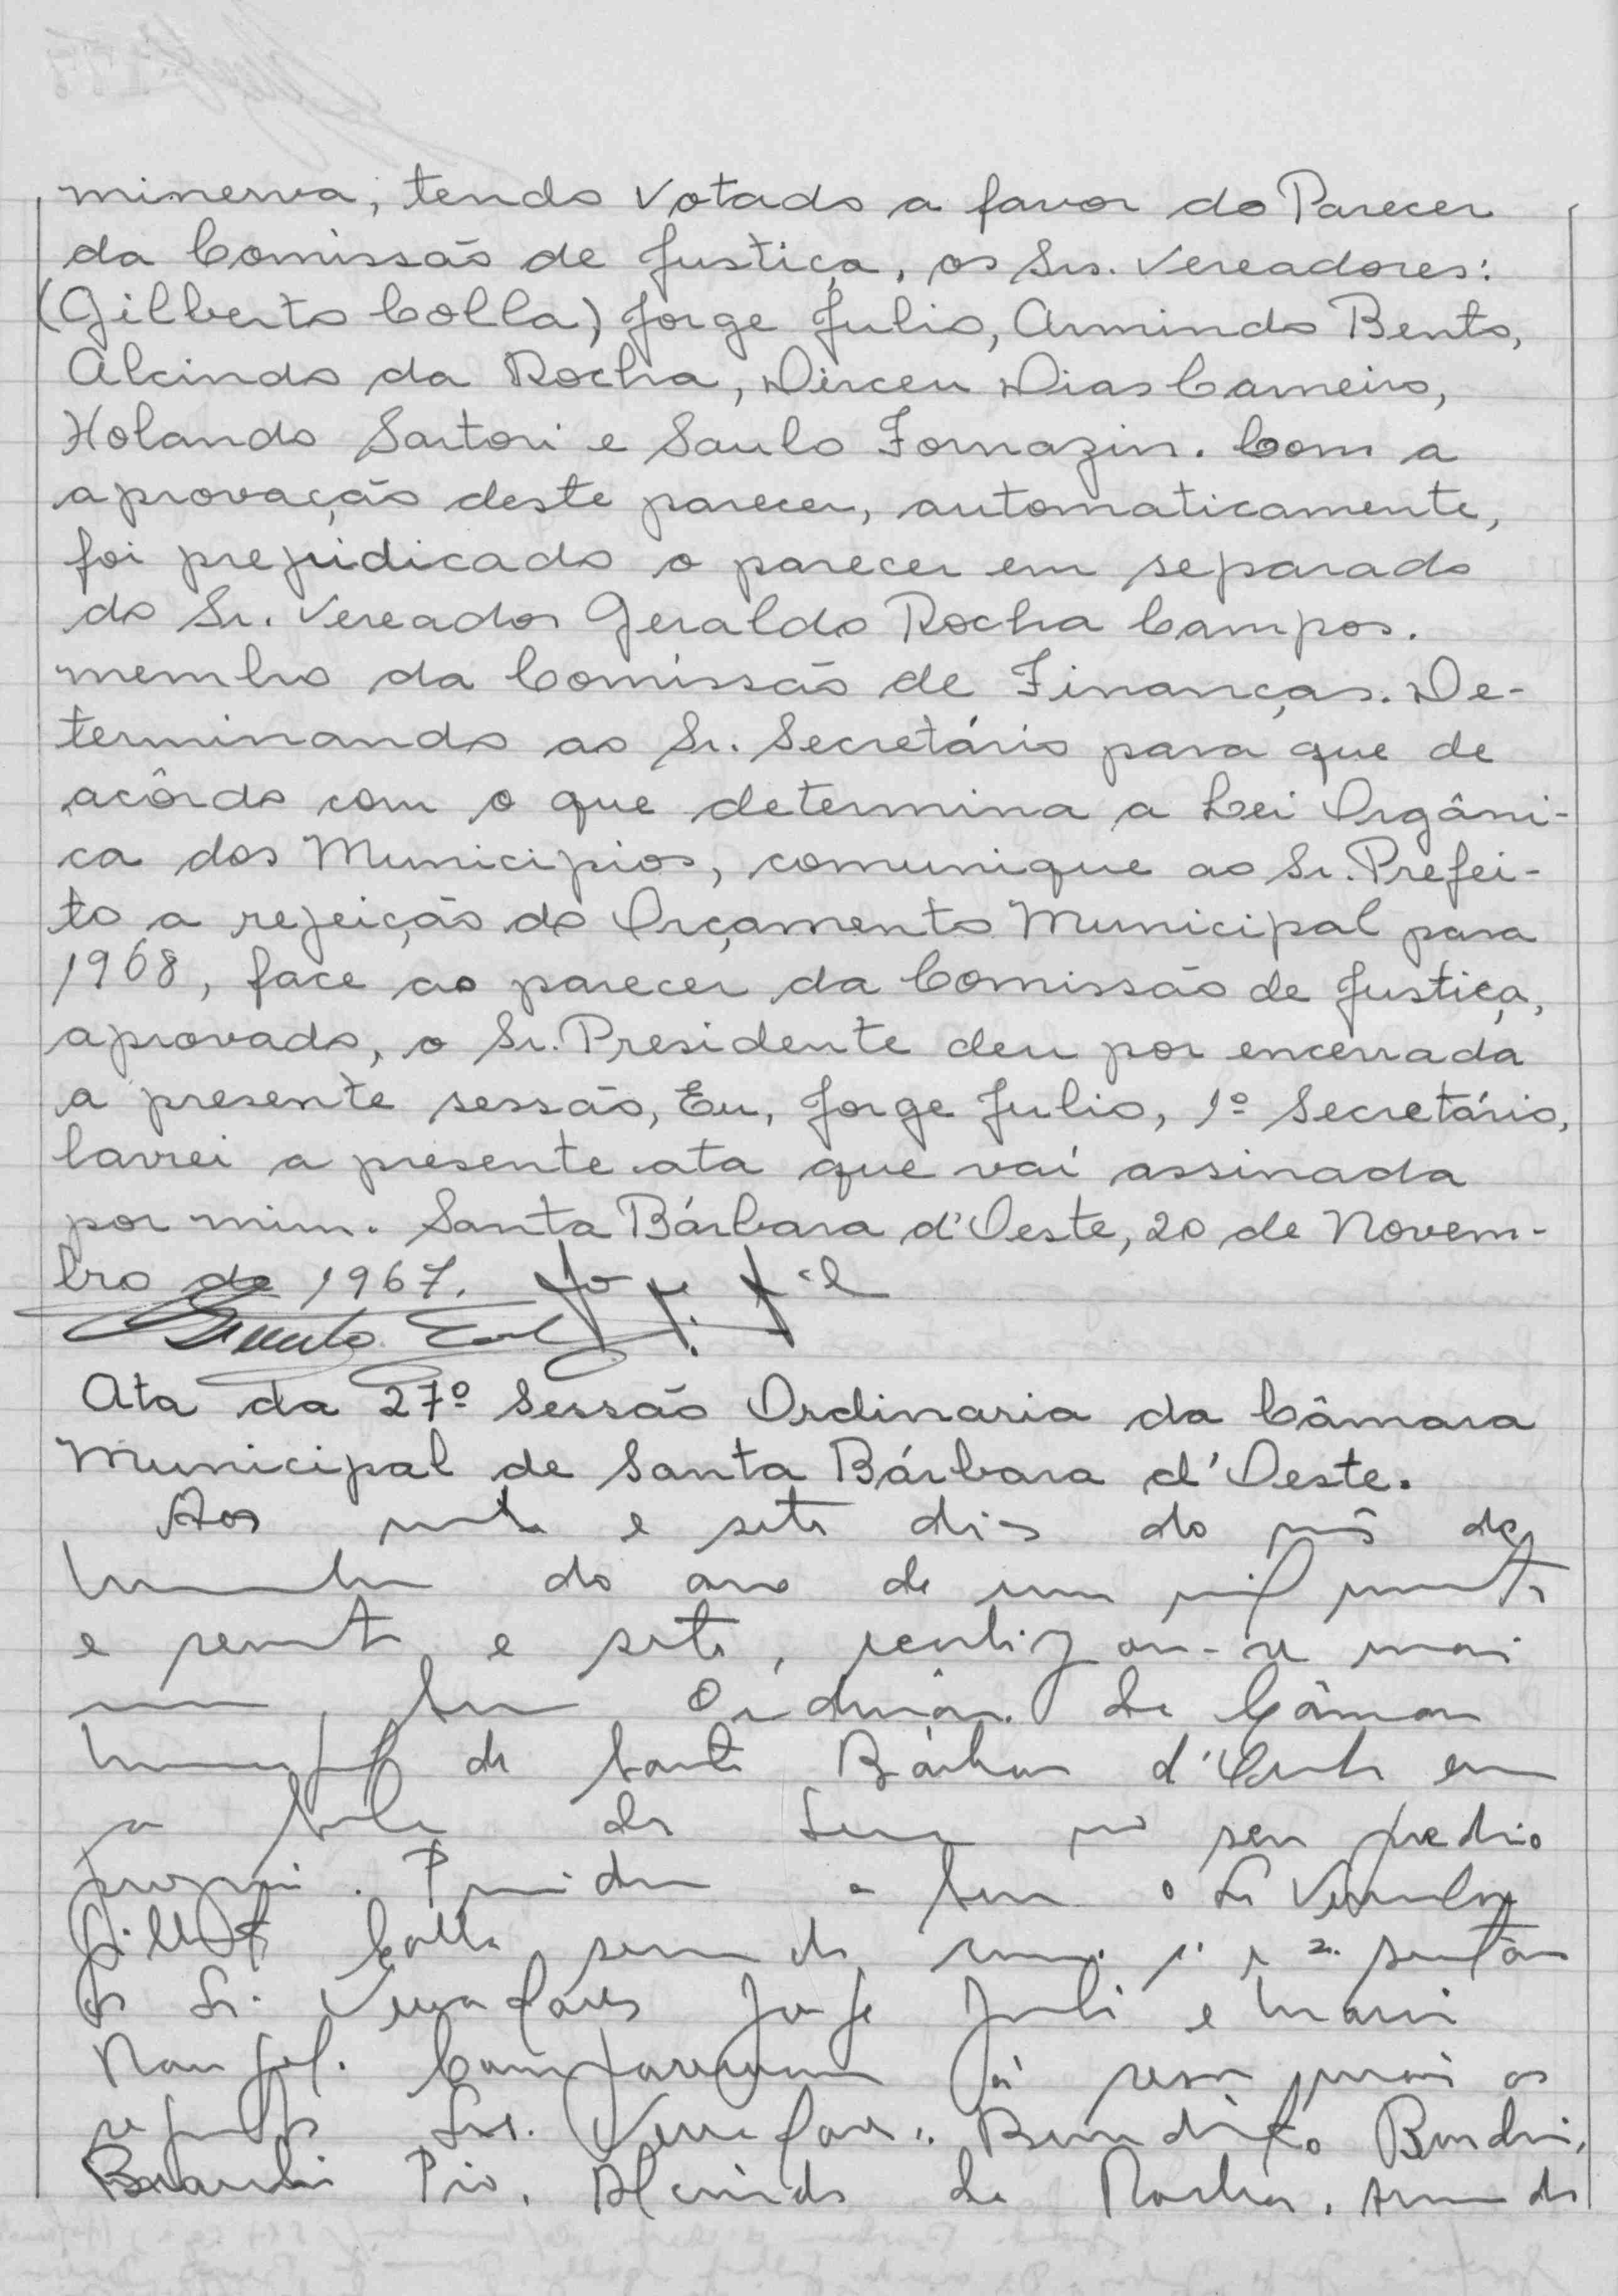 minerva, tendo votado a favor do Parecer
da Comissão de Justiça, os Srs. Vereadores:
(Gilberto Colla) Jorge Julio, Armindo Bento,
Alcindo da Rocha, Dirceu Dias Carneiro,
Holando Sartori e Saulo Fornazin. Com a
aprovação deste parecer, automaticamente,
foi prejudicado o parecer em separado
do Sr. Vereador Geraldo Rocha Campos.
membro da Comissão de Finanças. De-
terminando ao Sr. Secretário para que de
acôrdo com o que determina a Lei Orgâni-
ca dos Municipios, comunique ao Sr. Prefei-
to a rejeição do Orçamento Municipal para
1968, face ao parecer da Comissão de Justiça,
aprovado, o Sr. Presidente deu por encerrada
a presente sessão, Eu, Jorge Julio, 1º Secretário,
lavrei a presente ata que vai assinada
por mim. Santa Bárbara d'Oeste, 20 de Novem-
bro de 1967.
Ata da 27º Sessão Ordinaria da Câmara
Municipal de Santa Bárbara d'Oeste.
Aos vinte e sete dias do mês de
do ano de um mil
e e sete, realizou-se mais
uma Ordinária da Câmara
Municipal de Santa Bárbara d'Oeste em
a de no seu predio
proprio. o Sr. Vereador
Gilberto Colla 1º e 2º
os Srs. Vereadores Jorge Julio e Mario
Compareceram à mais os
seguintes Srs. Vereadores: Benedito
Pio, Alcindo da Rocha, Armindo